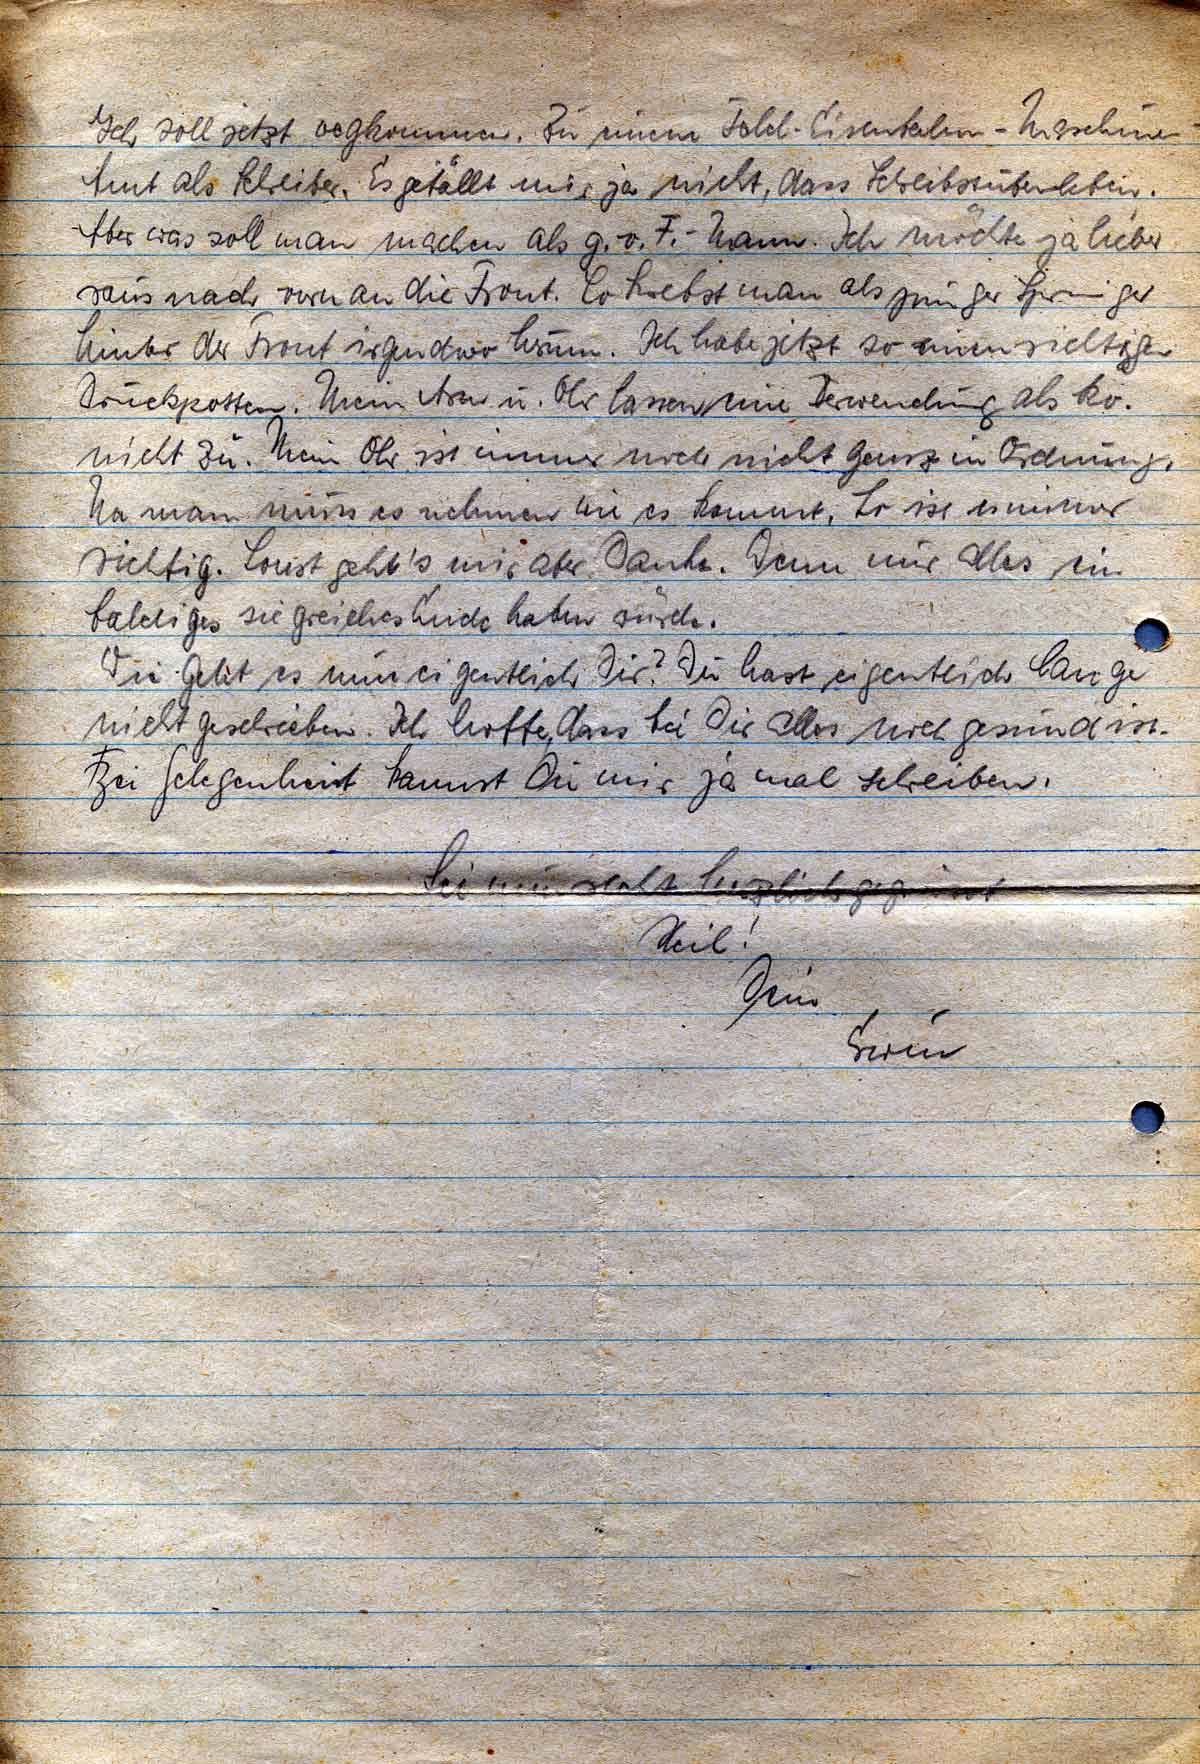 Ich soll jetzt wegkommen. Zu einem Feld-Eisenbahn-Maschinen
Amt als Schreiber. Es gefällt mir ja nicht, dass Schreibstubenleben.
Aber was soll man machen als g.v.F.-Mann. Ich möchte ja lieber
raus nach vorn an die Front. So krebst man als junger
hinter der Front irgendwo herum. Ich habe jetzt so einen richtigen
Druckposten. Mein Arm u. Ohr lassen eine Verwendung als kv.
nicht zu. Mein Ohr ist immer noch nicht ganz in Ordnung.
Na man muss es nehmen wie es kommt. So ist es immer
richtig. Sonst geht's mir aber Danke. Wenn nur alles ein
baldiges siegreiches Ende haben würde.
Wie geht es nun eigentlich Dir? Du hast eigentlich lange
nicht geschrieben. Ich hoffe, dass bei Dir alles noch gesund ist.
Bei Gelegenheit kannst Du mir ja mal schreiben.
Sei nun recht herzlich gegrüsst
Heil!
Dein
Erwin